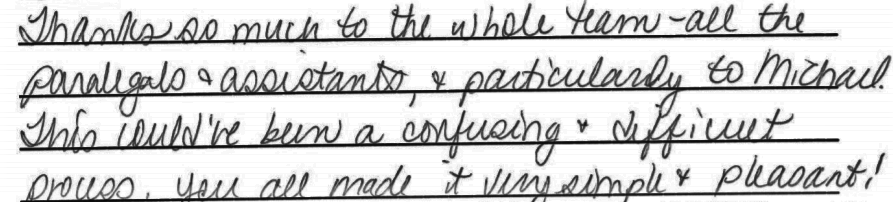 Thanks so much to the whole team - all the
paralegals & assistants, & particularly to Michael.
This could've been a confusing & difficult
process. You all made it very simple & pleasant!